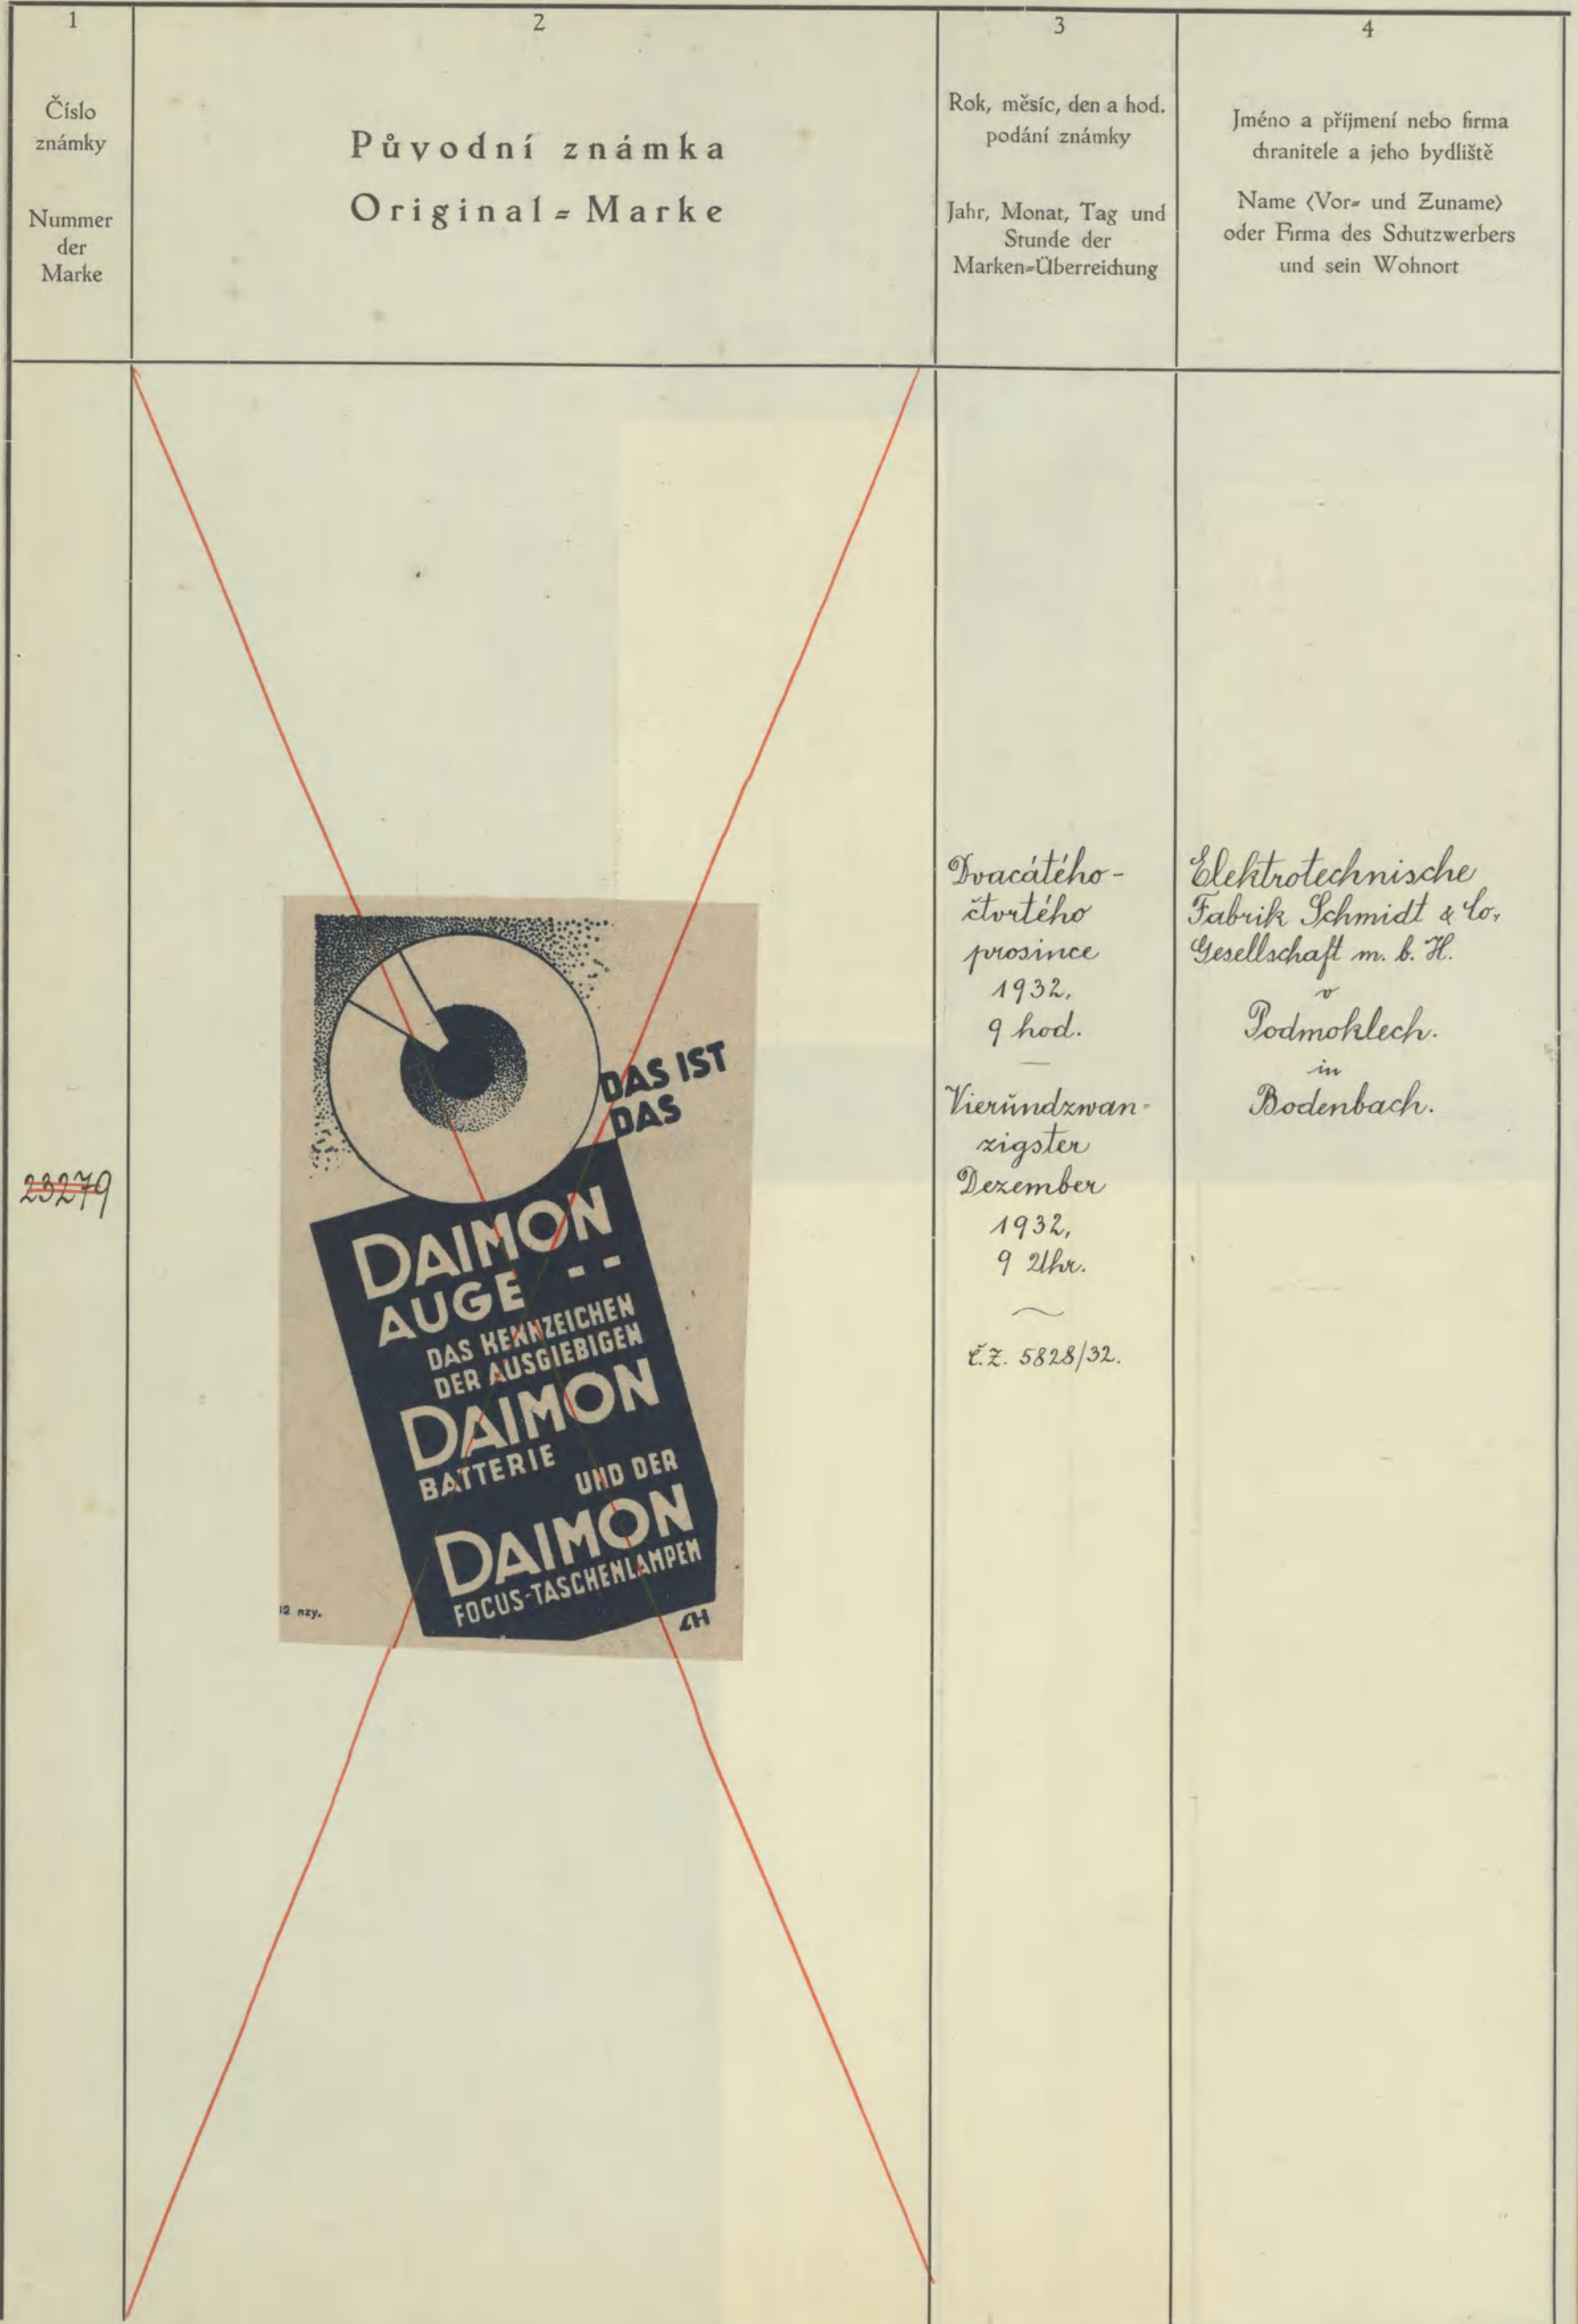 1
Číslo
známky
Nummer
der
Marke
2
Původní známka
Original=Marke
3
Rok, měsíc, den a hod.
podání známky
Jahr, Monat, Tag und
Stunde der
Marken=Überreichung
4
Jméno a příjmení nebo firma
chranitele a jeho bydliště
Name (Vor= und Zuname)
oder Firma des Schutzwerbers
und sein Wohnort
23279
DAS IST
DAS
DAIMON
AUGE --
DAS KENNZEICHEN
DER AUSGIEBIGEN
DAIMON
BATTERIE
UND DER
DAIMON
FOCUS-TASCHENLAMPEN
12 nzy.
Dvacátého-
čtvrtého
prosince
1932,
9 hod.
Vierundzwan-
zigster
Dezember
1932,
9 Uhr.
č.z. 5828/32.
Elektrotechnische
Fabrik Schmidt & Co,
Gesellschaft m. b. H.
v
Podmoklech.
in
Bodenbach.